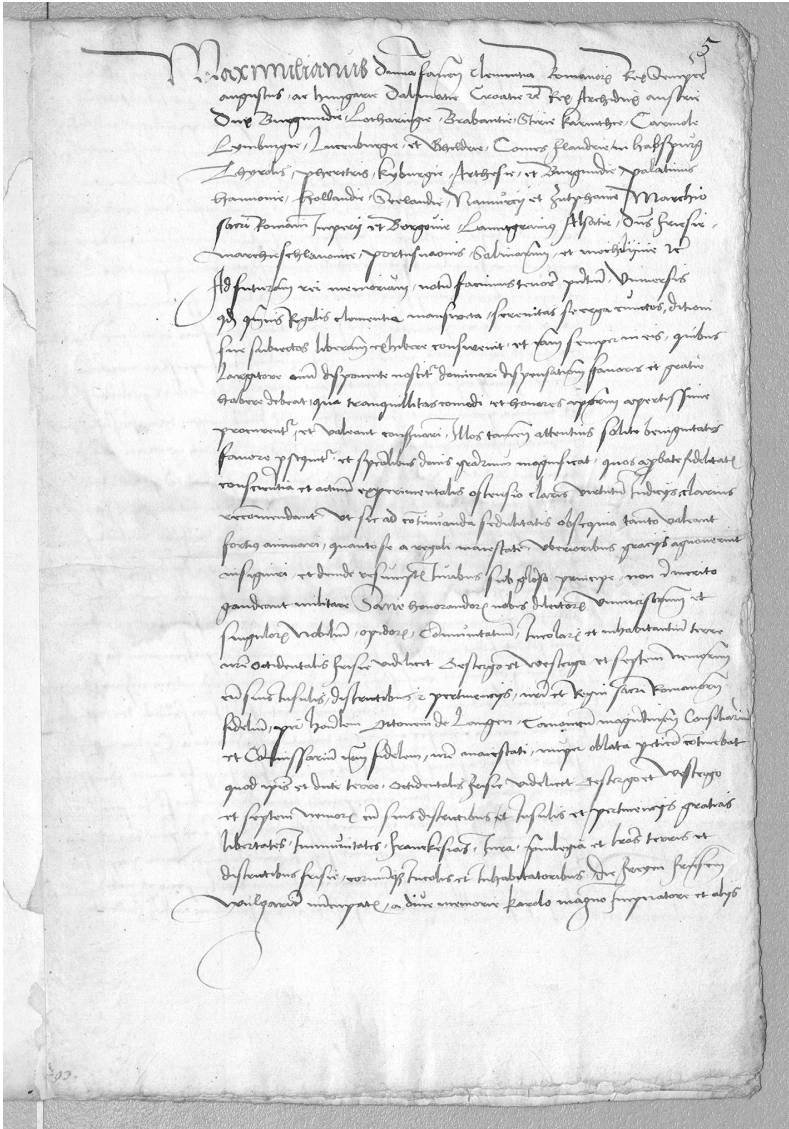 Maximilianus divina favente clementia Romanorum Rex Semper
augustus, ac hungarie Dalmatie Croatie etc Rex Archidux austrie
Dux Burgundie, Lotharingie, Brabantie, Stirie karinthie, Carniole
Lymburgie, Lucenburgie, et Gheldrie, Comes flandrie in habspurg
Thyrolis, pherretis, kyburgie, Arthesie, et Burgundie palatinus
hannonie, hollandie, Seelandie, Namurcij et Zutphanie Marchio
sacri Romani Imperij et Borgovie Lanntgravius Alsatie, Dns frisie,
marchie schlavonice, portusnaonis Salinarum, et mechlinie etc
Ad futuram rei memoriam, notum facimus tenore pntium, Universis
qd qmvis Regalis clementie mansueta, serenitas se erga cunctos, ditioni
sue subiectos liberam exhibere consuevit, et eam semper in eis, quibus
largitore omnium disponente noscitur dominari dispensationem favoris et gratie
habere debeat, qua tranquillitas comodi et honores ipsorum apertissime
procurentr, et valeant consuari, Illos tamen attentius solite benignitatis
favore psequitr, et spealibus donis gratiarum magnificat, quos approbate fidelitatis
conscientia et actuum experimentalis ostensio claris virtutum Indicijs clarius
recomendant Ut sic ad continuanda sedulitatis obsequia tanto valeant
fortius animari, quanto se a regali maiestate uberioribus gracijs agnoverint
insigniri, et deinde resumptis viribus sub glorioso principe, non immerito
gaudeant militare Sane honorandorum nobis dilectorum universorum et
singulorum Nobilium, opidorum, Comunitatum, Incolarum et inhabitantium terre
nre occidentalis frisie videlicet Oestergo et Westergo et septem nemorum
cum suis Insulis, districtibus et pertinencijs, nri et Regni sacri Romanorum
fidelium, per hon. Ottonem de Langen Canonicum magun. Consiliarium
et Comissarium nrm fidelem, nre maiestati, nuper oblata peticio continebat
quod ipsis et dicte terre occidentalis frisie videlicet oestergo et Westergo
et septem nemorum cum suis districtibus et Insulis et pertinencijs gratias
libertates, Inmunitates, franckesias, Iura, privilegia et lras terris et
districtibus frisie, eorumque Incolis et Inhabitatoribus Die fregen fresen
vulgariter nuncupatis, a dive memorie karolo magno Imperatore et alijs